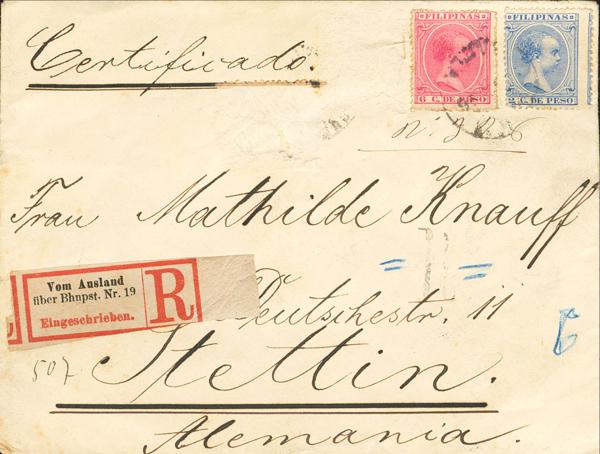 Certificado.
FILIPINAS
6 C. DE PESO
FILIPINAS
2 C. DE PESO
Frau Mathilde Knauff
Vom Ausland
über Bhnpst. Nr. 19
Eingeschrieben.
R
Deutschestr. 11
507
Stettin.
Alemania.